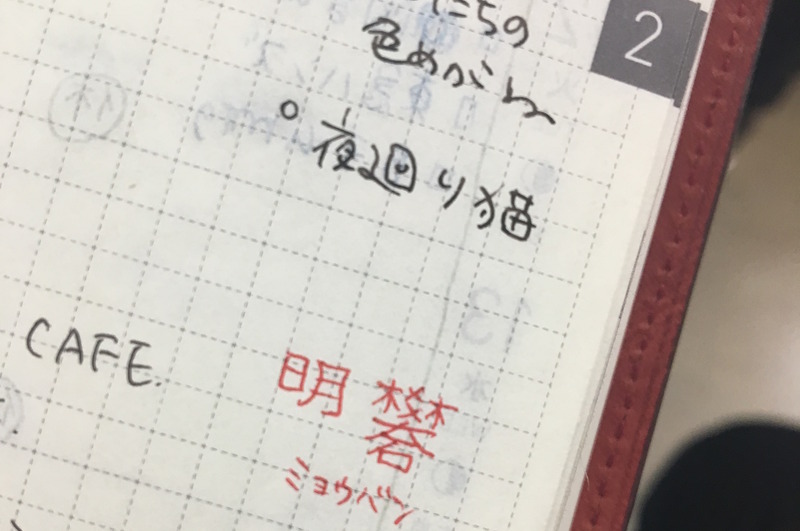 2
たちの
色めがね
○夜廻り猫
CAFE
明礬
ミョウバン